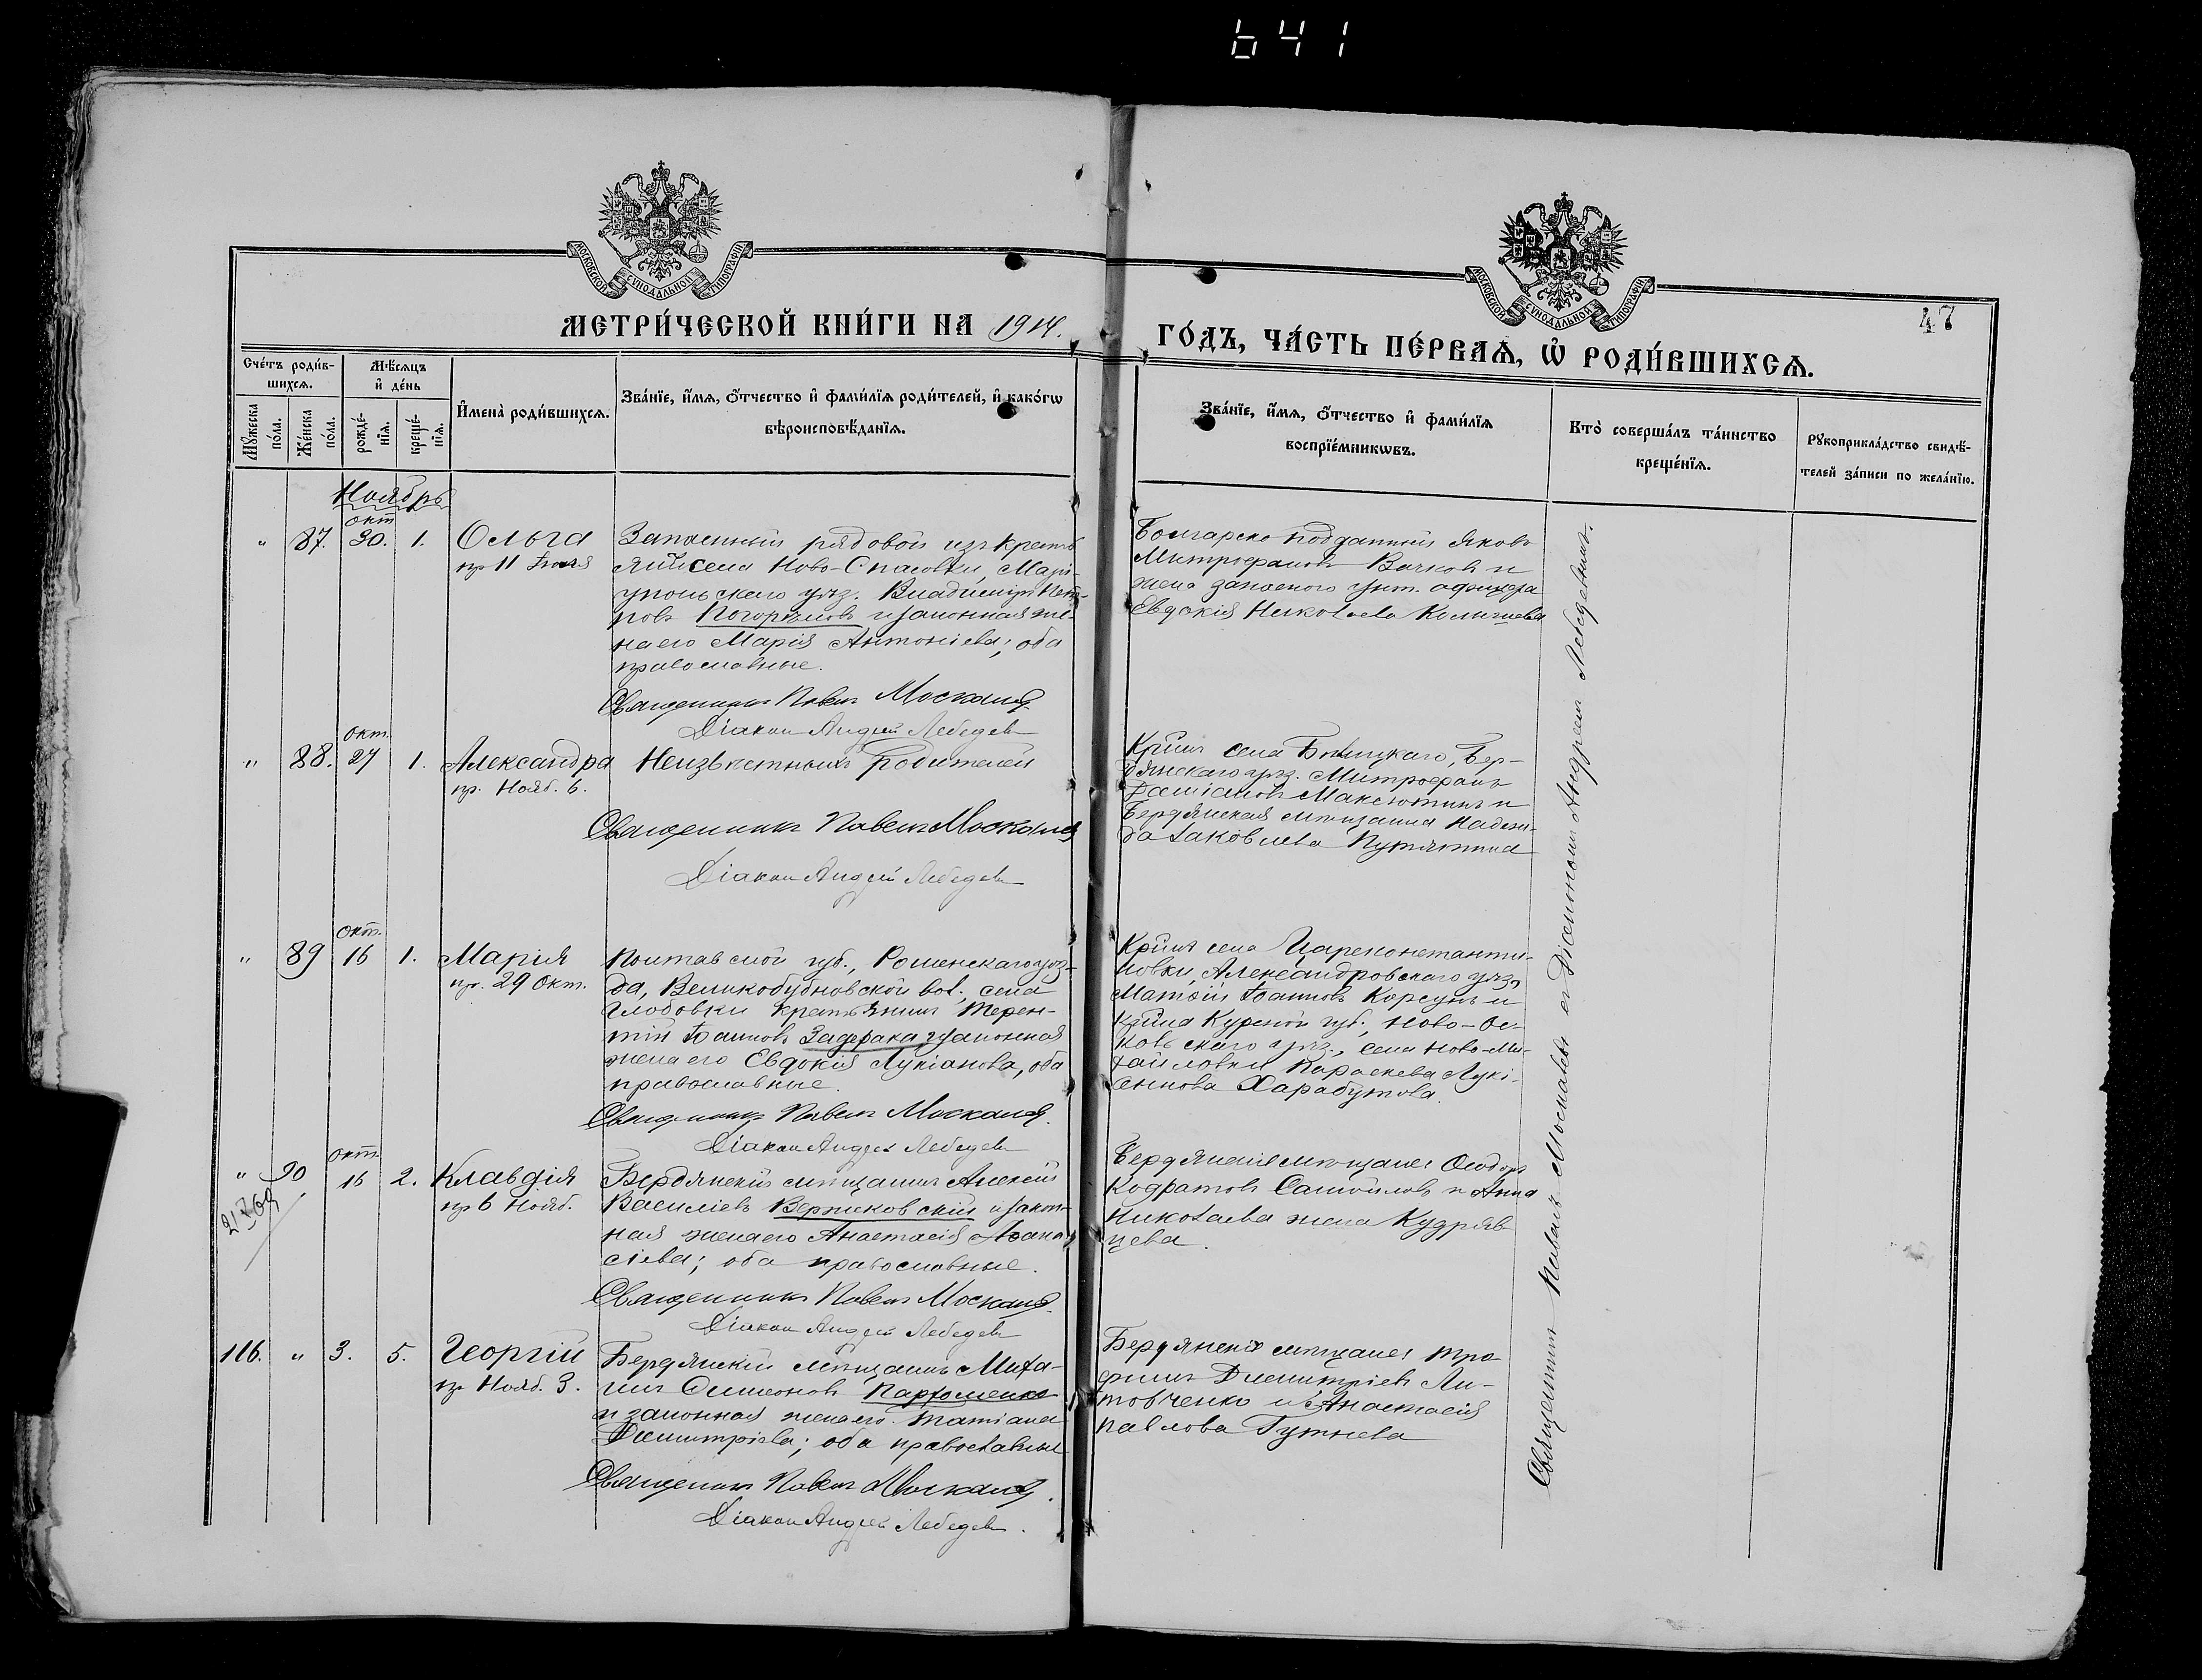 641
МОСКОВСКОЙ СУНОДАЛЬНОЙ ТИПОГРАФІИ
МОСКОВСКОЙ СУНОДАЛЬНОЙ ТИПОГРАФІИ
47
МЕТРИ́ЧЕСКОЙ КНИ́ГИ НА 1914.
ГО́ДЪ, ЧА́СТЬ ПЕ́РВАѦ, Ѡ҆ РОДИ́ВШИХСѦ.
Сче́тъ роди́в-
шихсѧ.
Мѣ́сѧцъ
и҆ де́нь
Мꙋ́жеска
по́ла.
Же́нска
по́ла.
рожде́-
нїѧ.
креще́-
нїѧ.
И҆мена̀ роди́вшихсѧ.
Зва́нїе, и҆́мѧ, ѻ҆́тчество и҆ фами́лїѧ роди́телей, и҆ како́гѡ
вѣроисповѣ́данїѧ.
Зва́нїе, и҆́мѧ, ѻ҆́тчество и҆ фами́лїѧ
воспрїе́мникѡвъ.
Кто̀ соверша́лъ та́инство
креще́нїѧ.
Рꙋкоприкла́дство свидѣ́-
телей за́писи по жела́нїю.
Ноябрь
окт.
" 87. 30. 1. Ольга
пр 11 Іюля
Запасный рядовой изъ крестъ
янъ села Ново-Спасовки, Марі-
упольскаго уѣз. Владиміръ Пет-
ровъ Погорѣловъ и законная же-
на его Марія Антоніева; оба
православные.
Священникъ Павелъ Москалев
Діаконъ Андрей Лебедевъ
Болгарско подданный Яковъ
Митрофановъ Вачковъ и
жена запасного унт. офицера
Евдокія Николаева
окт.
" 88. 27 1. Александра
пр. Нояб. 6.
Неизвѣстныхъ родителей
Священникъ Павелъ Москалев
Діаконъ Андрей Лебедевъ
Кр-нинъ села Бер-
дянскаго уѣз. Митрофанъ
Даміановъ Максютинъ и
Бердянская мѣщанка Надеж-
да Іаковлева Путятина
окт.
" 89 16 1. Марія
пр. 29 Окт.
Полтавской губ., Роменскаго уѣз-
да, Великобубновской вол., села
Глобовки крестьянинъ Терен-
тій Іоанновъ Задерака и законная
жена его Евдокія Лукіанова, оба
православные.
Священникъ Павелъ Москалев
Діаконъ Андрей Лебедевъ
Кр-нинъ села Цареконстанти-
новки, Александровскаго уѣз.
Матѳій Іоанновъ Корсунъ и
кр-нка Курской губ., Ново-Ос-
кольскаго уѣз., села Ново-Ми-
хайловки Параскева Лукі-
аннова Харабутова.
окт.
" 90 16 2. Клавдія
пр 6 Нояб.
Бердянскій мѣщанинъ Алексій
Василіевъ Вержиковскій и закон-
ная жена его Анастасія Аѳана-
сіева; оба православные.
Священникъ Павелъ Москалев
Діаконъ Андрей Лебедевъ
Бердянскіе мѣщане: Ѳеодоръ
Кодратовъ Самойловъ и Анна
Николаева жена Кудряв-
цева.
116. " 3. 5. Георгій
пр Нояб. 3.
Бердянскій мѣщанинъ Миха-
илъ Симеоновъ Пархоменко
и законная жена его Татіана
Димитріева; оба православные
Священникъ Павелъ Москалев
Діаконъ Андрей Лебедевъ.
Бердянскіе мѣщане: Тро-
фимъ Димитріевъ Ли-
товченко и Анастасія
Павлова Гутнева
Священникъ Павелъ Москалевъ съ Діакономъ Андреемъ Лебедевымъ.